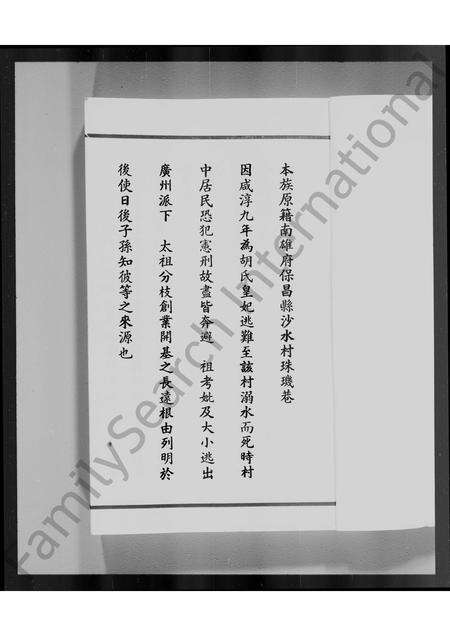 本族原籍南雄府保昌縣沙水村珠璣巷
因咸淳九年為胡氏皇妃逃難至該村溺水而死時村
中居民恐犯憲刑故盡皆奔避　祖考妣及大小逃出
廣州派下　太祖分枝創業開基之長遠根由列明於
後使日後子孫知彼等之來源也
FamilySearch International